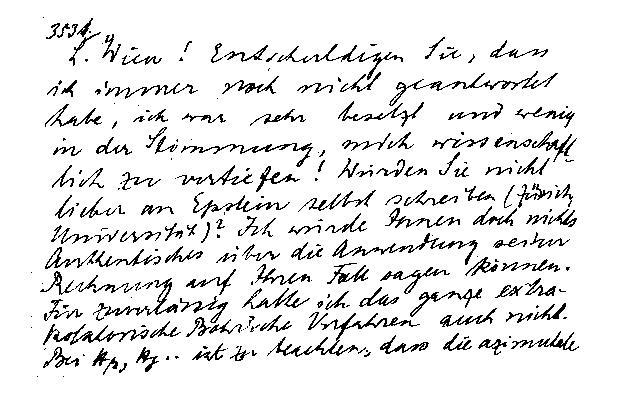 353.
L. Wien! Entschuldigen Sie, dass
ich immer noch nicht geantwortet
habe, ich war sehr besetzt und wenig
in der Stimmung, mich wissenschaft-
lich zu vertiefen! Würden Sie nicht
lieber an Epstein selbst schreiben (Zürich,
Universität)? Ich würde Ihnen doch nichts
Authentisches über die Anwendung seiner
Rechnung auf Ihren Fall sagen können.
Für zuverlässig halte ich das ganze extra-
polatorische Bohrsche Verfahren auch nicht.
Bei ist zu beachten, dass die azimutale